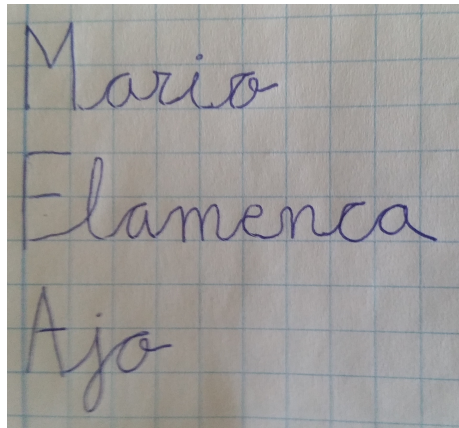 Mario
Flamenca
Ajo